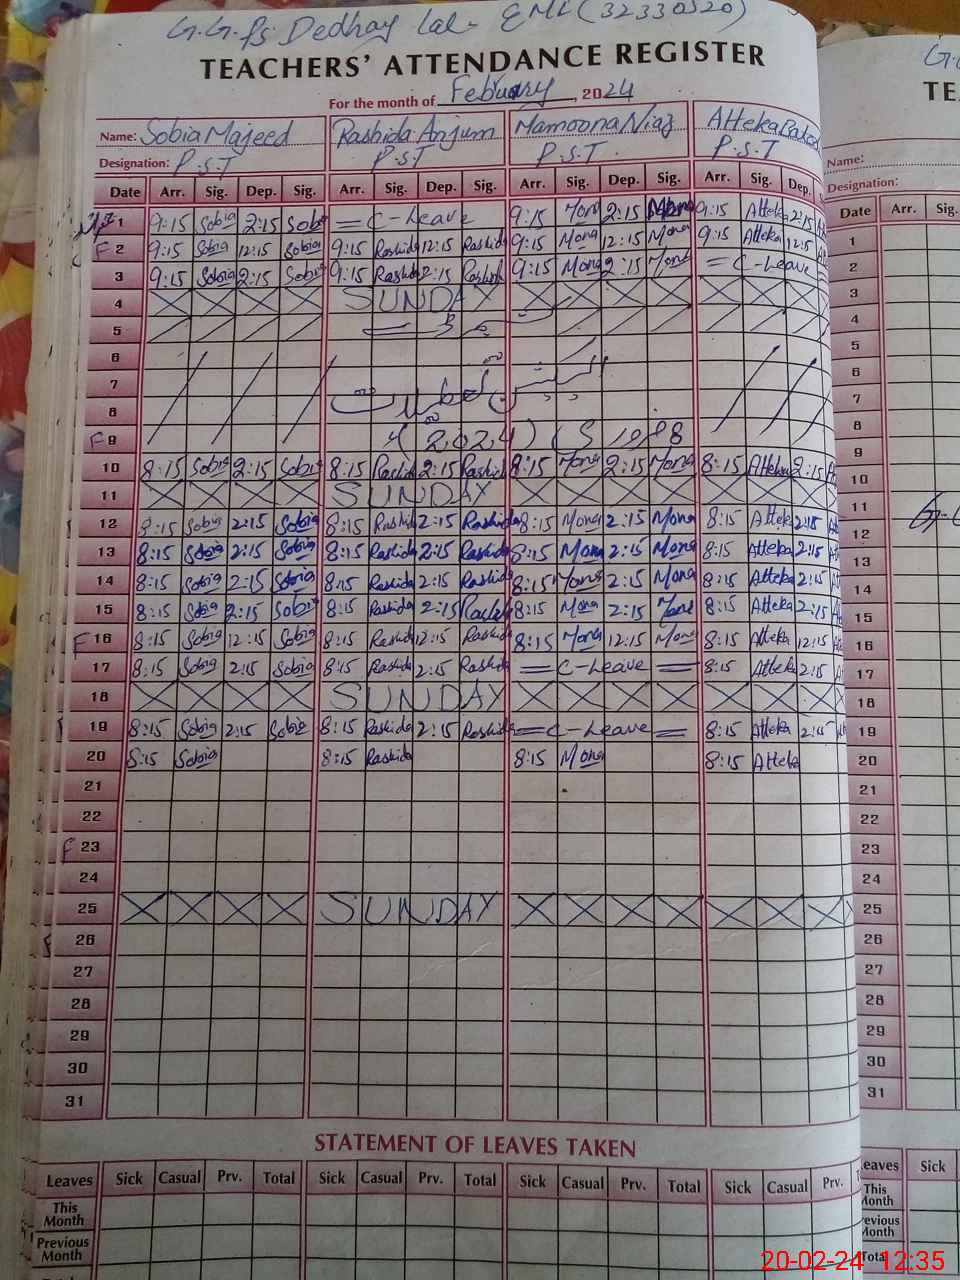 G.G.Ps Dedhay Lal - EMIS (32330320)
TEACHERS' ATTENDANCE REGISTER
For the month of Febuary, 2024
Name: Sobia Majeed Rashida Anjum Mamoona Niaz Atteka
Designation: P.S.T P.S.T P.S.T P.S.T
Date Arr. Sig. Dep. Sig. Arr. Sig. Dep. Sig. Arr. Sig. Dep. Sig. Arr. Sig. Dep.
1 9:15 Sobia 2:15 Sobia = C-Leave 9:15 Mona 2:15 Mona 9:15 Atteka 2:15
F 2 9:15 Sobia 12:15 Sobia 9:15 Rashida 12:15 Rashida 9:15 Mona 12:15 Mona 9:15 Atteka 12:15
3 9:15 Sobia 2:15 Sobia 9:15 Rashida 2:15 Rashida 9:15 Mona 2:15 Mona = C-Leave =
4 SUNDAY
5
6
7
8
F 9 (2024)
10 8:15 Sobia 2:15 Sobia 8:15 Rashida 2:15 Rashida 8:15 Mona 2:15 Mona 8:15 Atteka 2:15
11 SUNDAY
12 8:15 Sobia 2:15 Sobia 8:15 Rashida 2:15 Rashida 8:15 Mona 2:15 Mona 8:15 Atteka 2:15
13 8:15 Sobia 2:15 Sobia 8:15 Rashida 2:15 Rashida 8:15 Mona 2:15 Mona 8:15 Atteka 2:15
14 8:15 Sobia 2:15 Sobia 8:15 Rashida 2:15 Rashida 8:15 Mona 2:15 Mona 8:15 Atteka 2:15
15 8:15 Sobia 2:15 Sobia 8:15 Rashida 2:15 Rashida 8:15 Mona 2:15 Mona 8:15 Atteka 2:15
F 16 8:15 Sobia 12:15 Sobia 8:15 Rashida 12:15 Rashida 8:15 Mona 12:15 Mona 8:15 Atteka 12:15
17 8:15 Sobia 2:15 Sobia 8:15 Rashida 2:15 Rashida = C-Leave = 8:15 Atteka 2:15
18 SUNDAY
19 8:15 Sobia 2:15 Sobia 8:15 Rashida 2:15 Rashida = C-Leave = 8:15 Atteka 2:15
20 8:15 Sobia 8:15 Rashida 8:15 Mona 8:15 Atteka
21
22
F 23
24
25 SUNDAY
26
27
28
29
30
31
STATEMENT OF LEAVES TAKEN
Leaves Sick Casual Prv. Total Sick Casual Prv. Total Sick Casual Prv. Total Sick Casual Prv.
This Month
Previous Month
Total
TE
Name:
Designation:
Date Arr. Sig.
1
2
3
4
5
6
7
8
9
10
11
12
13
14
15
16
17
18
19
20
21
22
23
24
25
26
27
28
29
30
31
Leaves Sick
This Month
Previous Month
Total
20-02-24 12:35